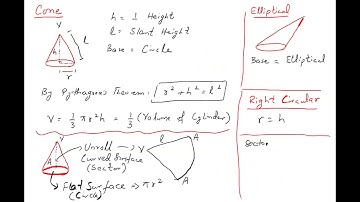 Cone
V
h
l
r
h = ⊥ Height
l = Slant Height
Base = Circle
By Pythagoras Theorem: r² + h² = l²
V = 1/3 πr²h = 1/3 (Volume of Cylinder)
V
A
Unroll
Curved Surface
(Sector)
V
l
A
A
Flat Surface ⇒ πr²
(Circle)
Elliptical
Base = Elliptical
Right Circular
r = h
Sector